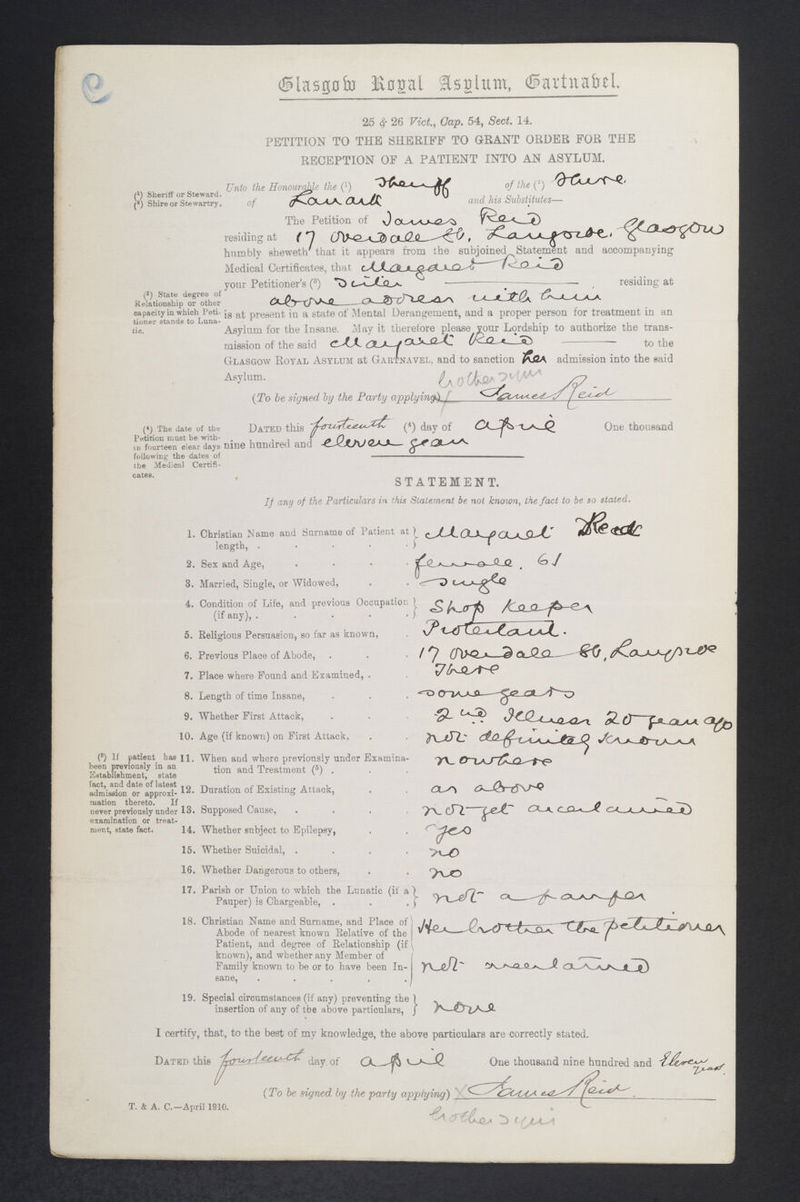 Glasgow Royal Asylum, Gartnabel.
25 & 26 Vict., Cap. 54, Sect. 14.
PETITION TO THE SHERIFF TO GRANT ORDER FOR THE
RECEPTION OF A PATIENT INTO AN ASYLUM.
(¹) Sheriff or Steward.
(²) Shire or Stewartry.
Unto the Honourable the (¹) Sheriff of the (²) Shire
of Lanark and his Substitutes—
The Petition of James Reid
residing at 17 Overdale St, Langside, Glasgow
humbly sheweth that it appears from the subjoined Statement and accompanying
Medical Certificates, that Margaret Reid
your Petitioner's (³) Sister residing at
above address with him
(³) State degree of
Relationship or other
capacity in which Peti-
tioner stands to Luna-
tic.
is at present in a state of Mental Derangement, and a proper person for treatment in an
Asylum for the Insane. May it therefore please your Lordship to authorize the trans-
mission of the said Margaret Reid to the
GLASGOW ROYAL ASYLUM at GARTNAVEL, and to sanction her admission into the said
Asylum.
brother signs
(To be signed by the Party applying) James Reid
(⁴) The date of the
Petition must be with-
in fourteen clear days
following the dates of
the Medical Certifi-
cates.
DATED this fourteenth (⁴) day of April One thousand
nine hundred and eleven years
STATEMENT.
If any of the Particulars in this Statement be not known, the fact to be so stated.
1. Christian Name and Surname of Patient at length, . Margaret Reid
2. Sex and Age, female. 61
3. Married, Single, or Widowed, single
4. Condition of Life, and previous Occupation (if any), . Shop Keeper
5. Religious Persuasion, so far as known, Protestant.
6. Previous Place of Abode, 17 Overdale St, Langside
7. Place where Found and Examined, . There
8. Length of time Insane, some years
9. Whether First Attack, 2nd Illness 20 years ago
10. Age (if known) on First Attack, not definitely known
(⁵) If patient has
been previously in an
Establishment, state
fact, and date of latest
admission or approxi-
mation thereto. If
never previously under
examination or treat-
ment, state fact.
11. When and where previously under Examina-
tion and Treatment (⁵) . nowhere
12. Duration of Existing Attack, as above
13. Supposed Cause, not yet ascertained
14. Whether subject to Epilepsy, yes
15. Whether Suicidal, . no
16. Whether Dangerous to others, no
17. Parish or Union to which the Lunatic (if a
Pauper) is Chargeable, . not a pauper
18. Christian Name and Surname, and Place of
Abode of nearest known Relative of the
Patient, and degree of Relationship (if
known), and whether any Member of
Family known to be or to have been In-
sane, Her brother the petitioner
not ascertained
19. Special circumstances (if any) preventing the
insertion of any of the above particulars, none
I certify, that, to the best of my knowledge, the above particulars are correctly stated.
DATED this fourteenth day of April One thousand nine hundred and Eleven years
(To be signed by the party applying) X James Reid.
T. & A. C.—April 1910.
brother signs